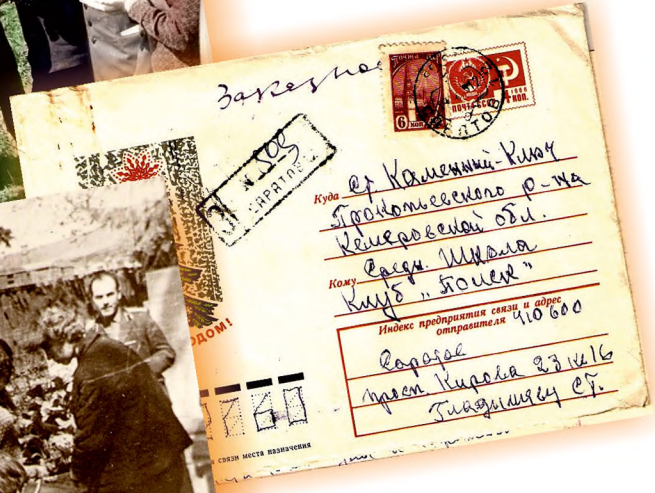 Заказное
ПОЧТА СССР
6 коп
1966
4 КОП.
САРАТОВ
З
N 509
САРАТОВ
Куда ст Каменный-Ключ
Прокопьевского р-на
Кемеровской обл.
Кому Средн. Школа
Клуб „Поиск"
Индекс предприятия связи и адрес
отправителя 410600
Саратов
просп. Кирова 23 кв 16
Гладышеву СТ.
ГОДОМ!
связи места назначения